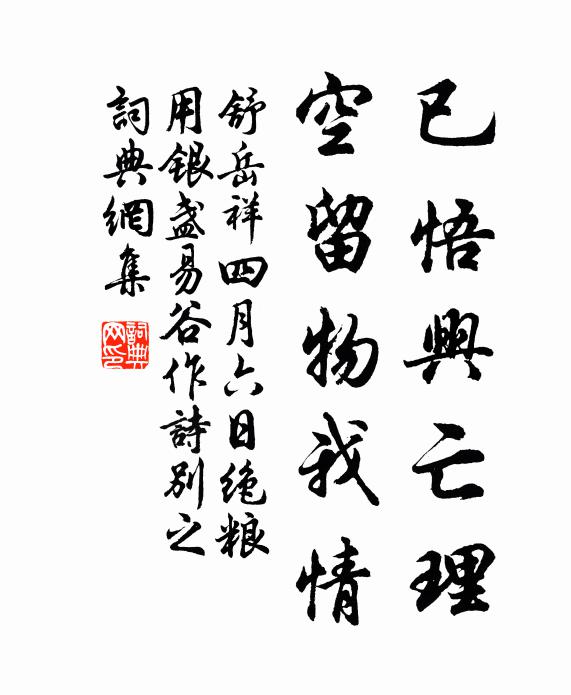 已悟興亡理
空留物我情
舒岳祥四月六日绝粮
用銀盏易谷作詩別之
詞典網集
詞典网印